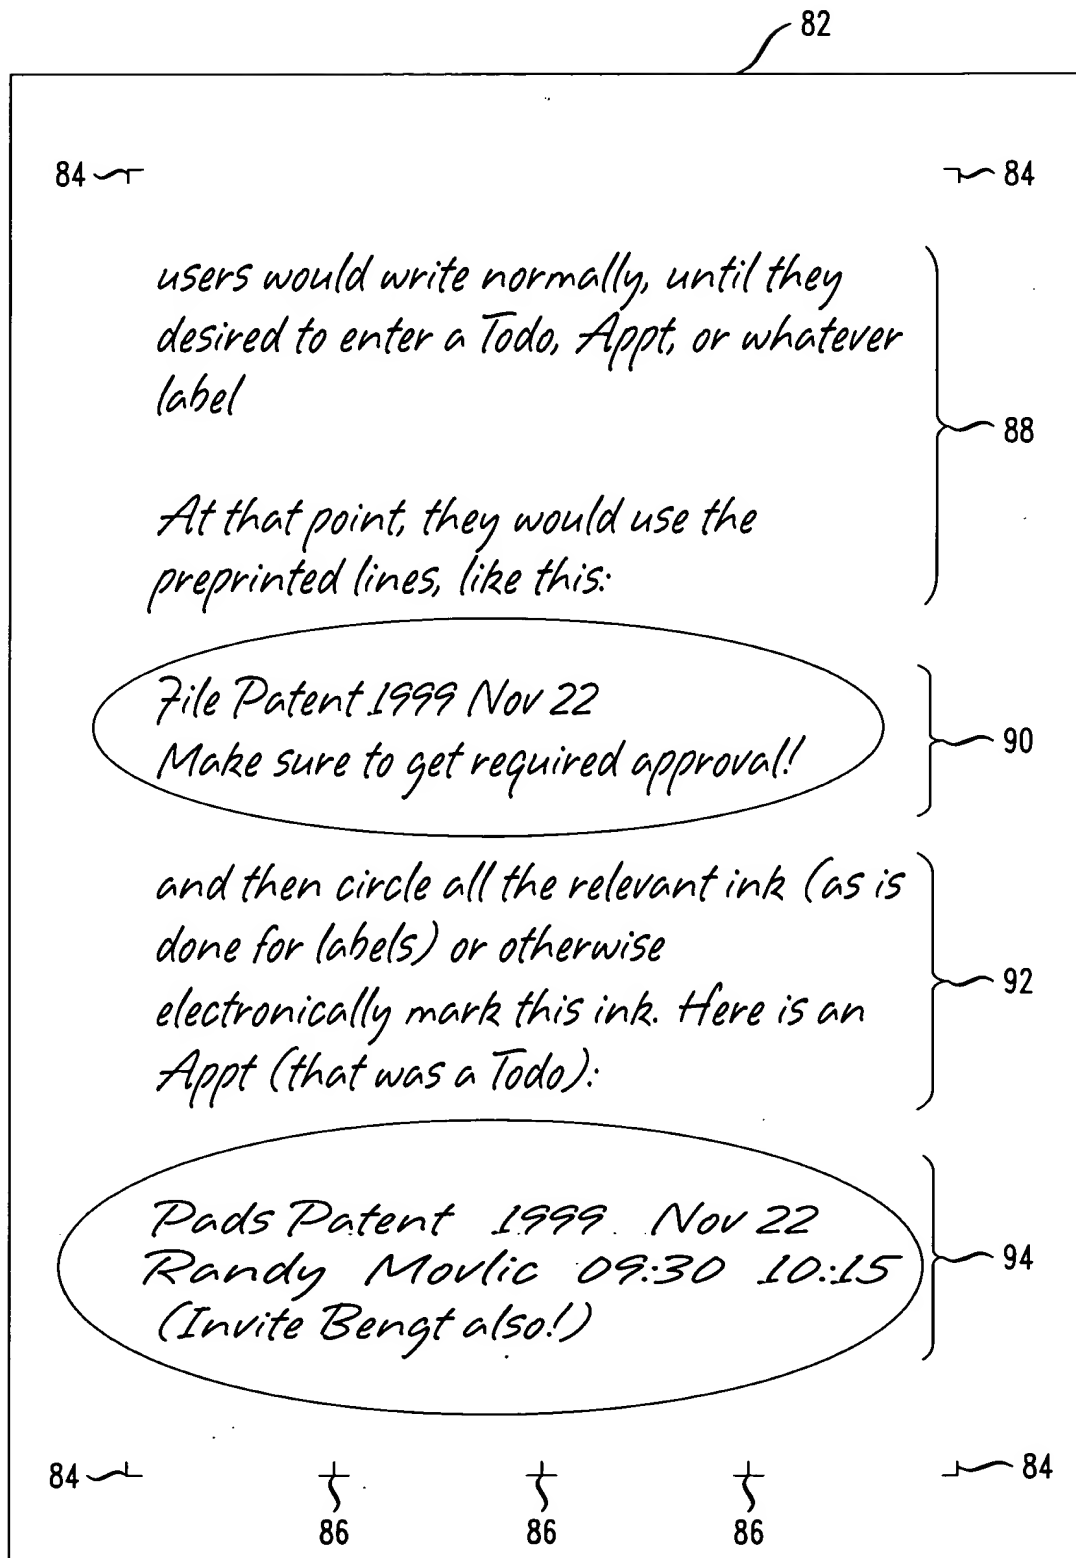 82
84 84
users would write normally, until they
desired to enter a Todo, Appt, or whatever
label
88
At that point, they would use the
preprinted lines, like this:
File Patent 1999 Nov 22
90
Make sure to get required approval!
and then circle all the relevant ink (as is
done for labels) or otherwise
92
electronically mark this ink. Here is an
Appt (that was a Todo):
Pads Patent 1999 Nov 22
94
Randy Movlic 09:30 10:15
(Invite Bengt also!)
84 84
86 86 86